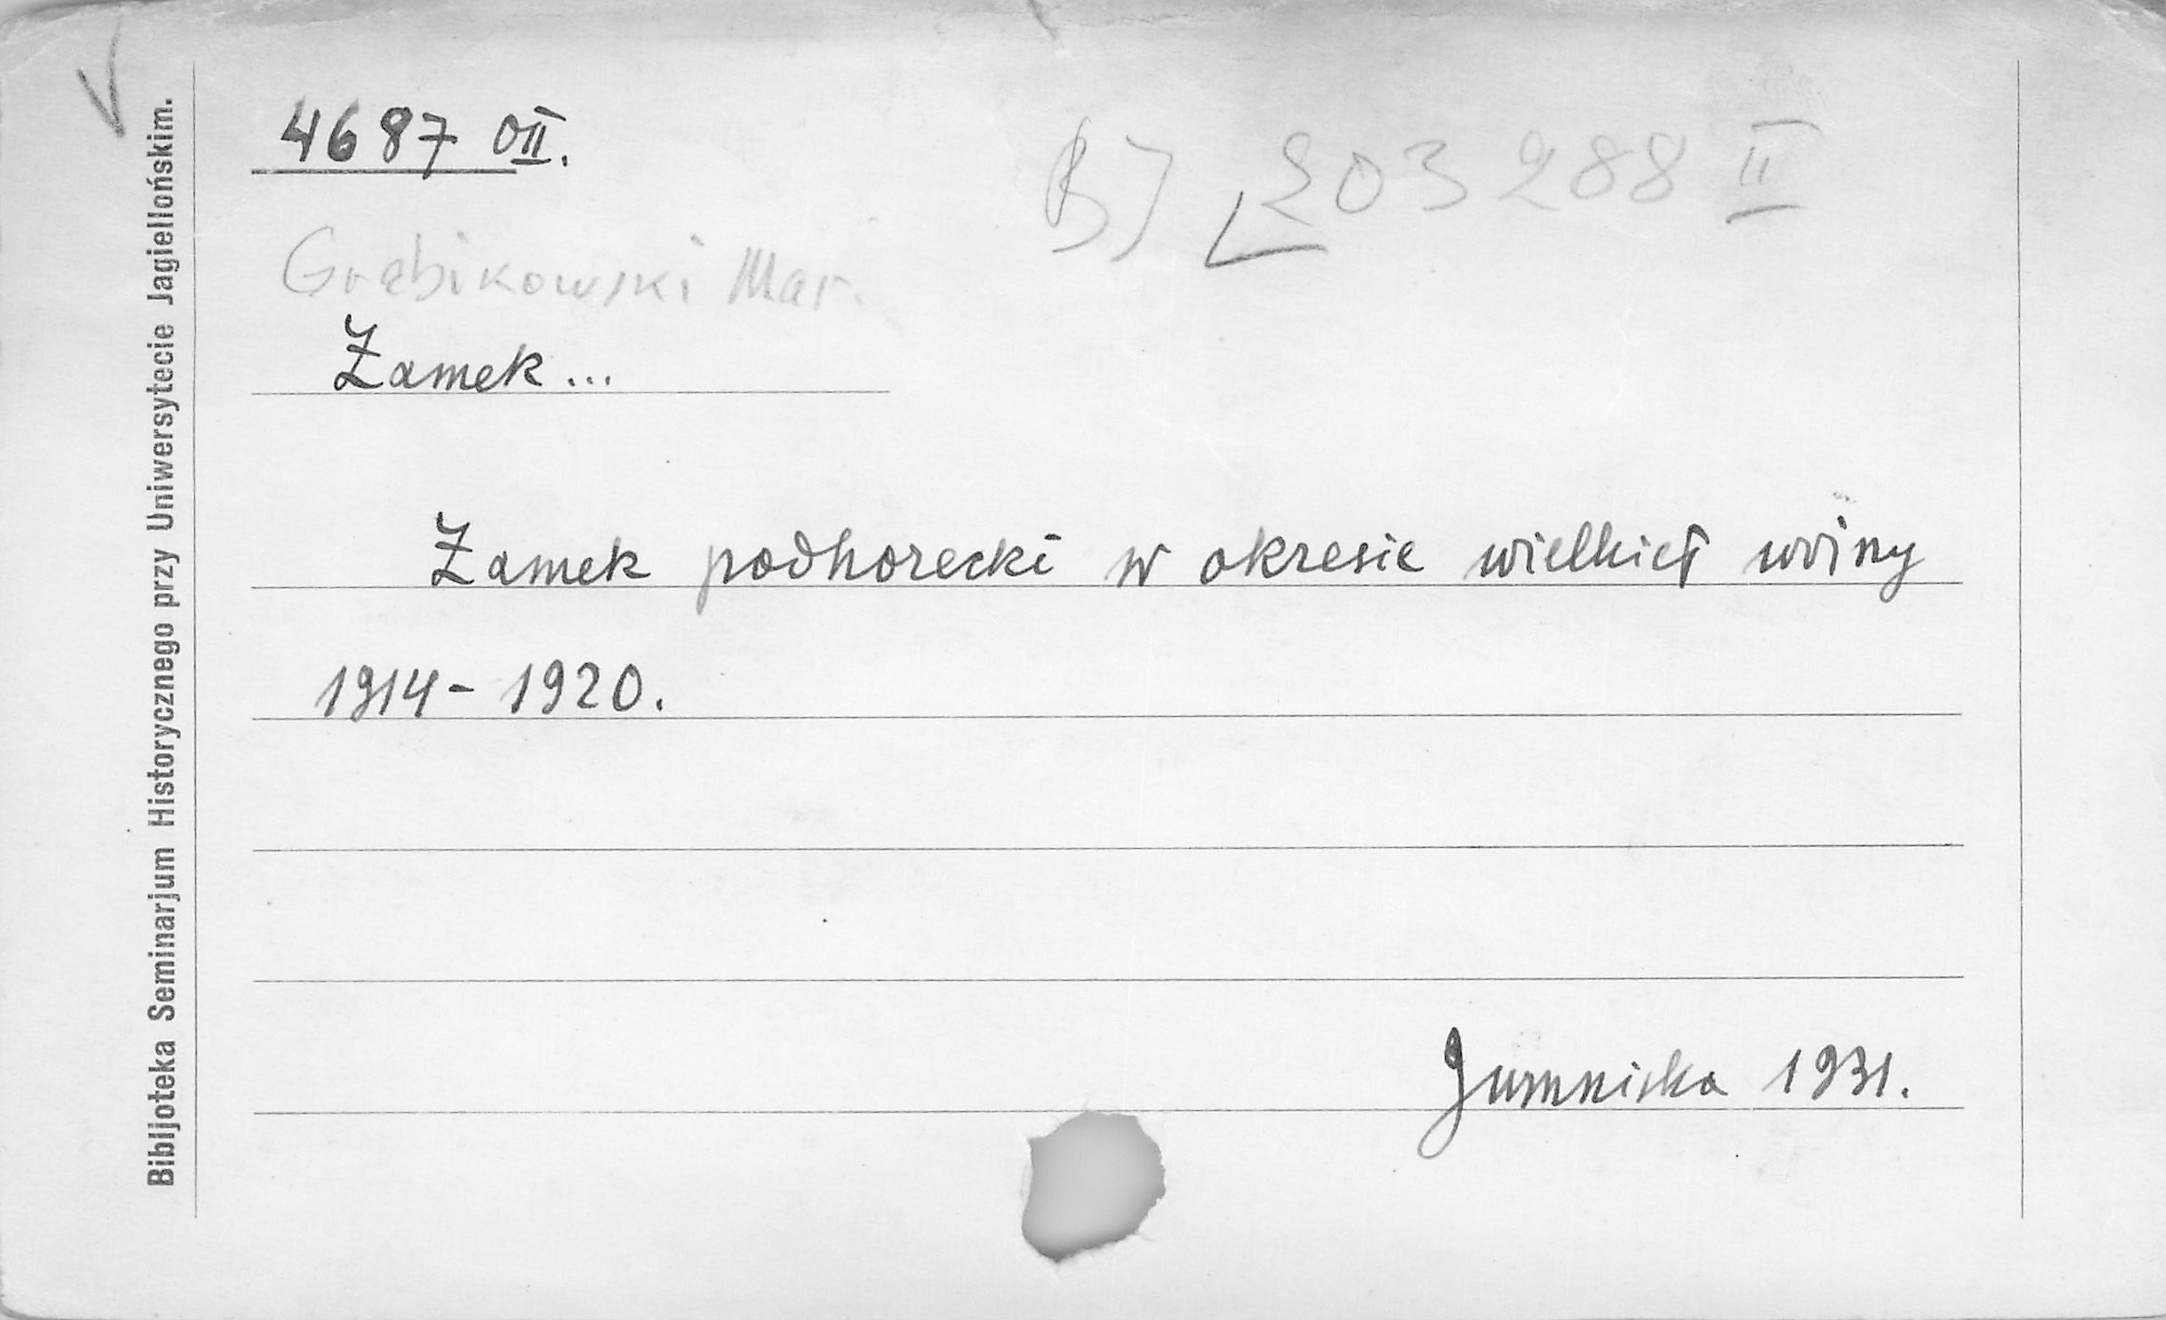 4687 OII.
BJ 203288 II
Grabikowski Mar.
Zamek...
Zamek podhorecki w okresie wielkiej wojny
1914-1920.
Gumniska 1931.
Bibljoteka Seminarjum Historycznego przy Uniwersytecie Jagiellońskim.